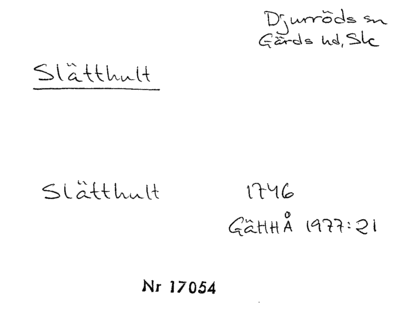 Djurröds sn
Gärds hd, Sk
Slätthult
Slätthult 1746
GäHHÅ 1977:21
Nr 17054